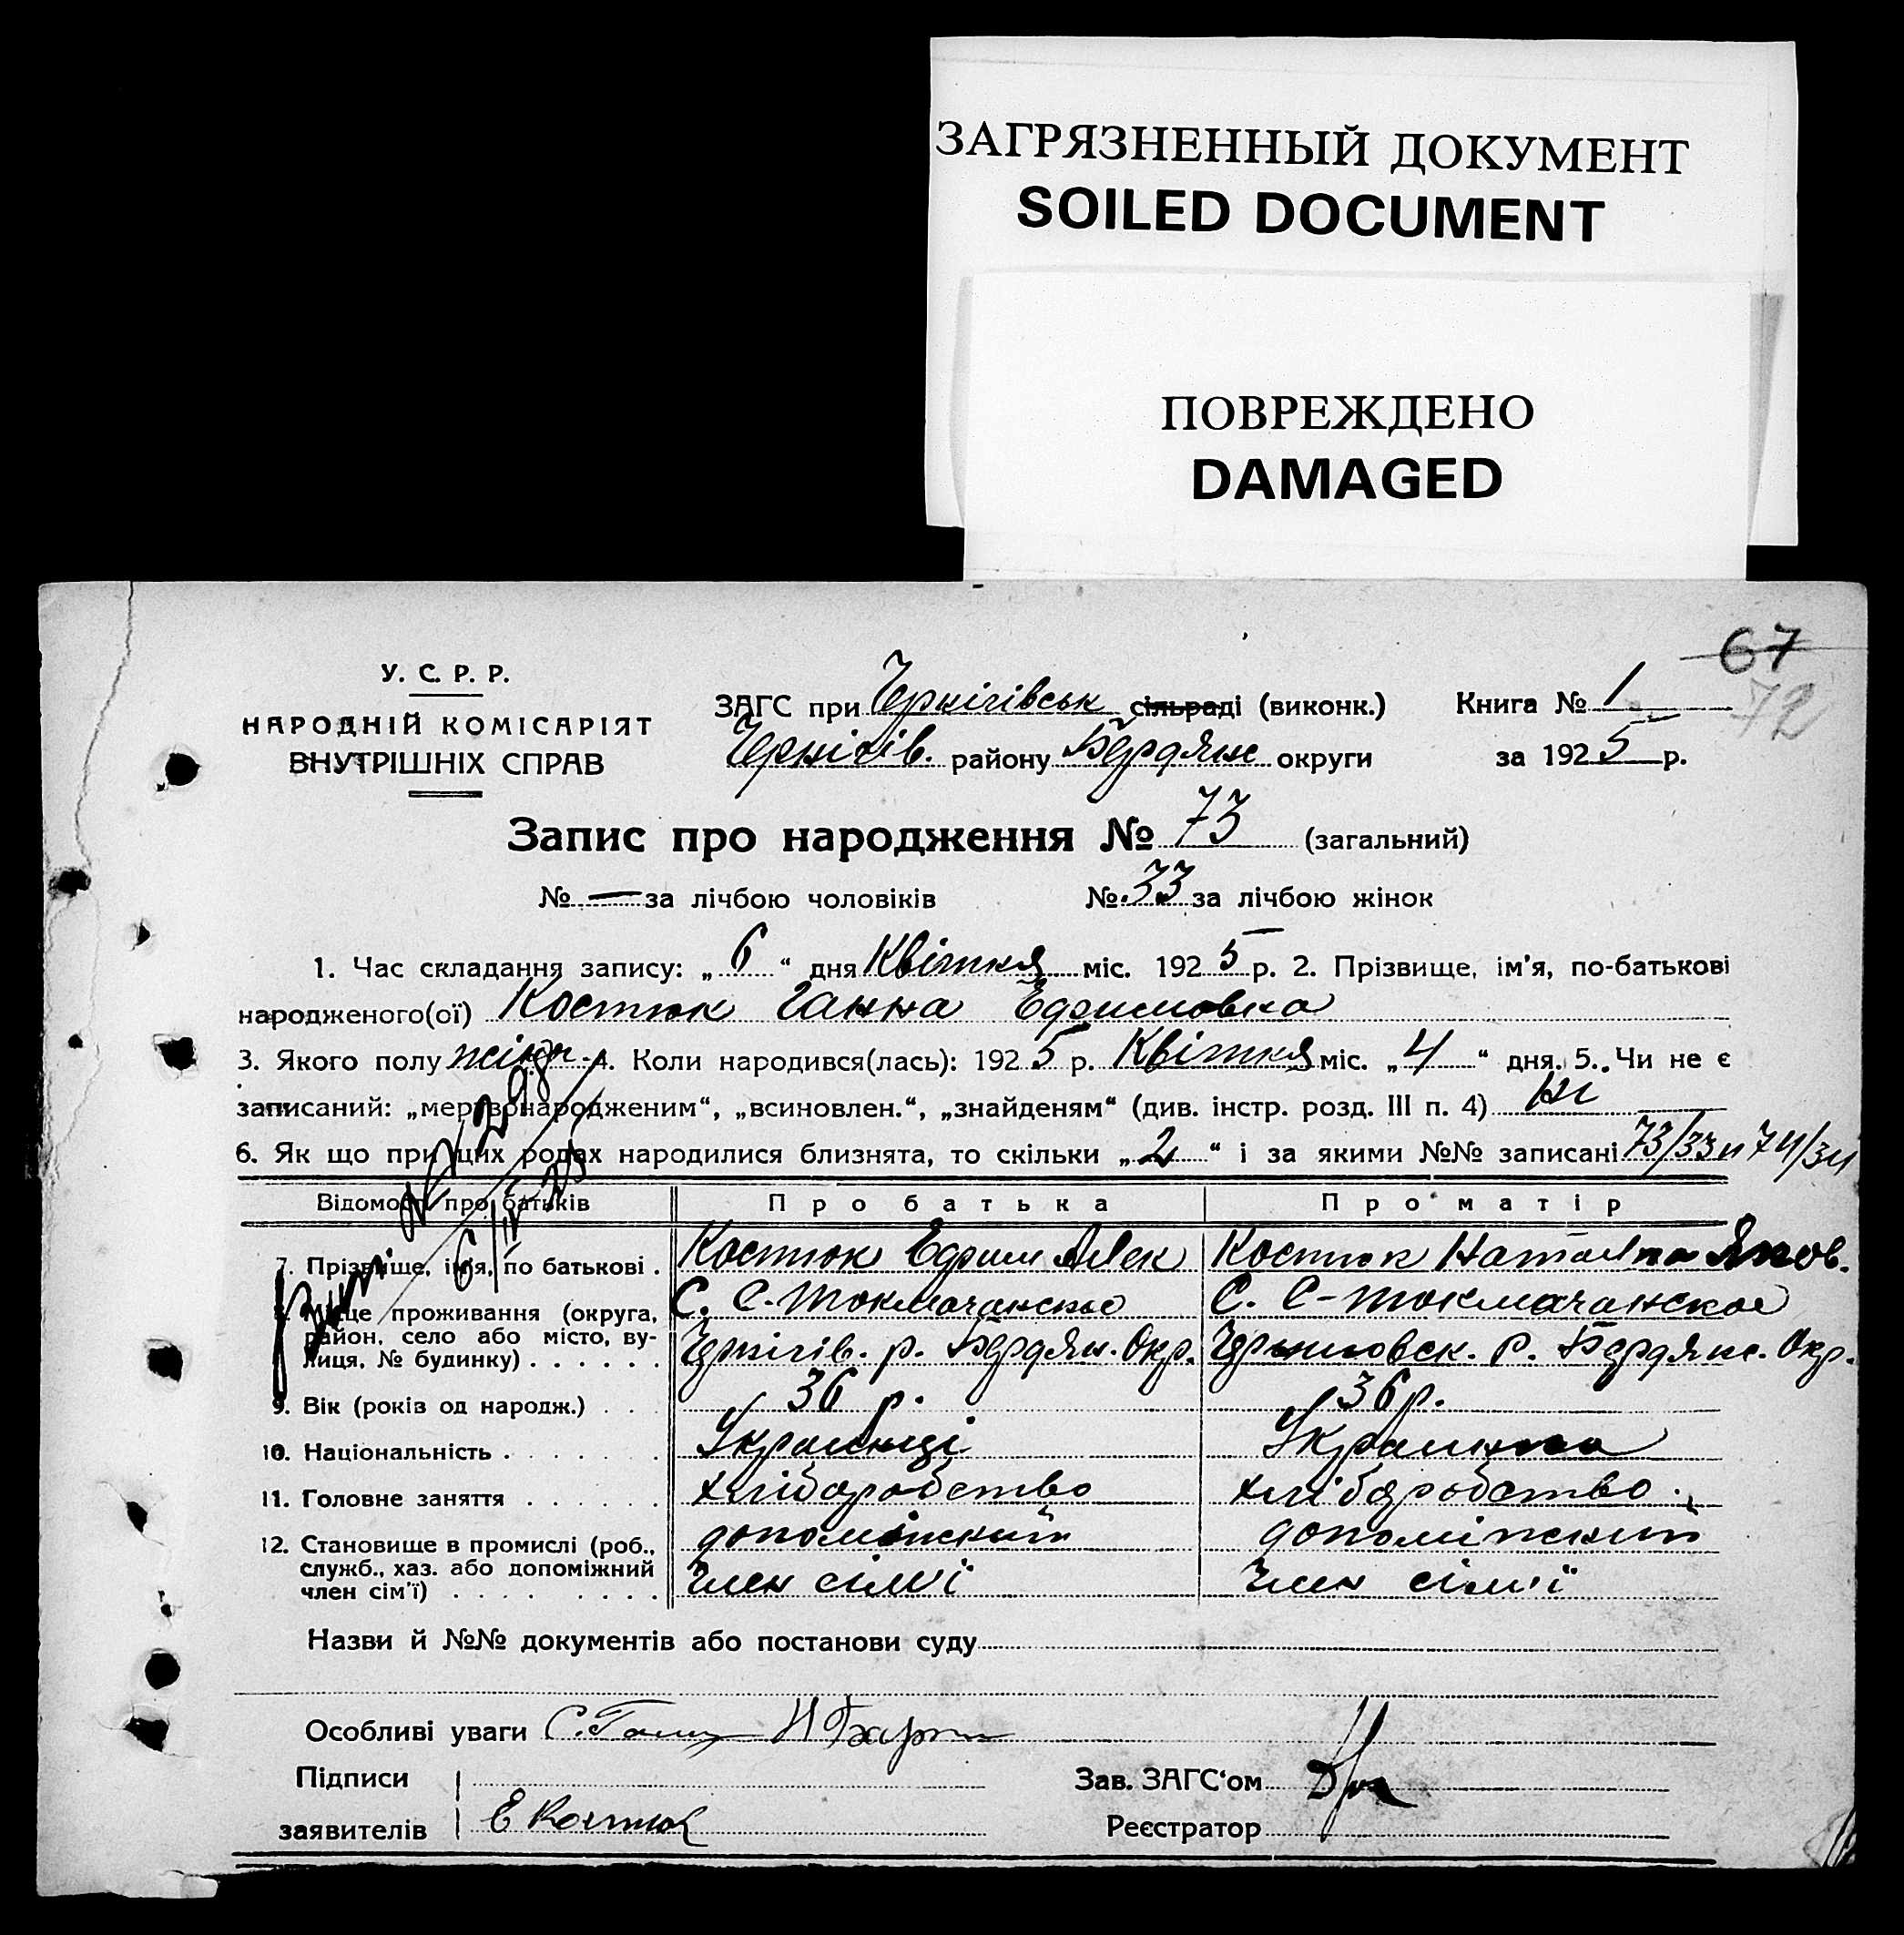 ЗАГРЯЗНЕННЫЙ ДОКУМЕНТ
SOILED DOCUMENT
ПОВРЕЖДЕНО
DAMAGED
67
72
У. С. Р. Р.
НАРОДНІЙ КОМІСАРІЯТ
ВНУТРІШНІХ СПРАВ
ЗАГС при Чернігівськ сільраді (виконк.) Книга № 1
Чернігів. району Бердянс округи за 1925 р.
Запис про народження № 73 (загальний)
№ — за лічбою чоловіків № 33 за лічбою жінок
1. Час складання запису: „6“ дня Квітня міс. 1925 р. 2. Прізвище, ім'я, по-батькові
народженого(ої) Костюк Ганна Ефимовна
3. Якого полу жіноч. 4. Коли народився(лась): 1925 р. Квітня міс. „4“ дня. 5. Чи не є
записаний: „мертвонародженим“, „всиновлен.“, „знайденям“ (див. інстр. розд. III п. 4) ні
6. Як що при цих родах народилися близнята, то скільки „2“ і за якими №№ записані 73/33 и 74/34
№ 298
6/IV 25
Відомості про батьків Про батька Про матір
7. Прізвище, ім'я, по батькові . Костюк Ефим Алек Костюк Наталка Яков.
8. Місце проживання (округа, район, село або місто, вулиця, № будинку) . . . . . . С. С-Токмачанское С. С-Токмачанское
Чернігів. р. Бердян. Окр. Черниговск. р. Бердянс. Окр.
9. Вік (років од народж.) . . . 36 р. 36 р.
10. Національність . . . . . . . Украинці Украинка
11. Головне заняття . . . . . . хліборобство хліборобство
12. Становище в промислі (роб., служб., хаз. або допоміжний член сім'ї) . . . . . . . . допоміжний допоміжний
член сім'ї член сім'ї
Назви й №№ документів або постанови суду
Особливі уваги
Підписи Зав. ЗАГС'ом
заявителів Е Костюк Реєстратор